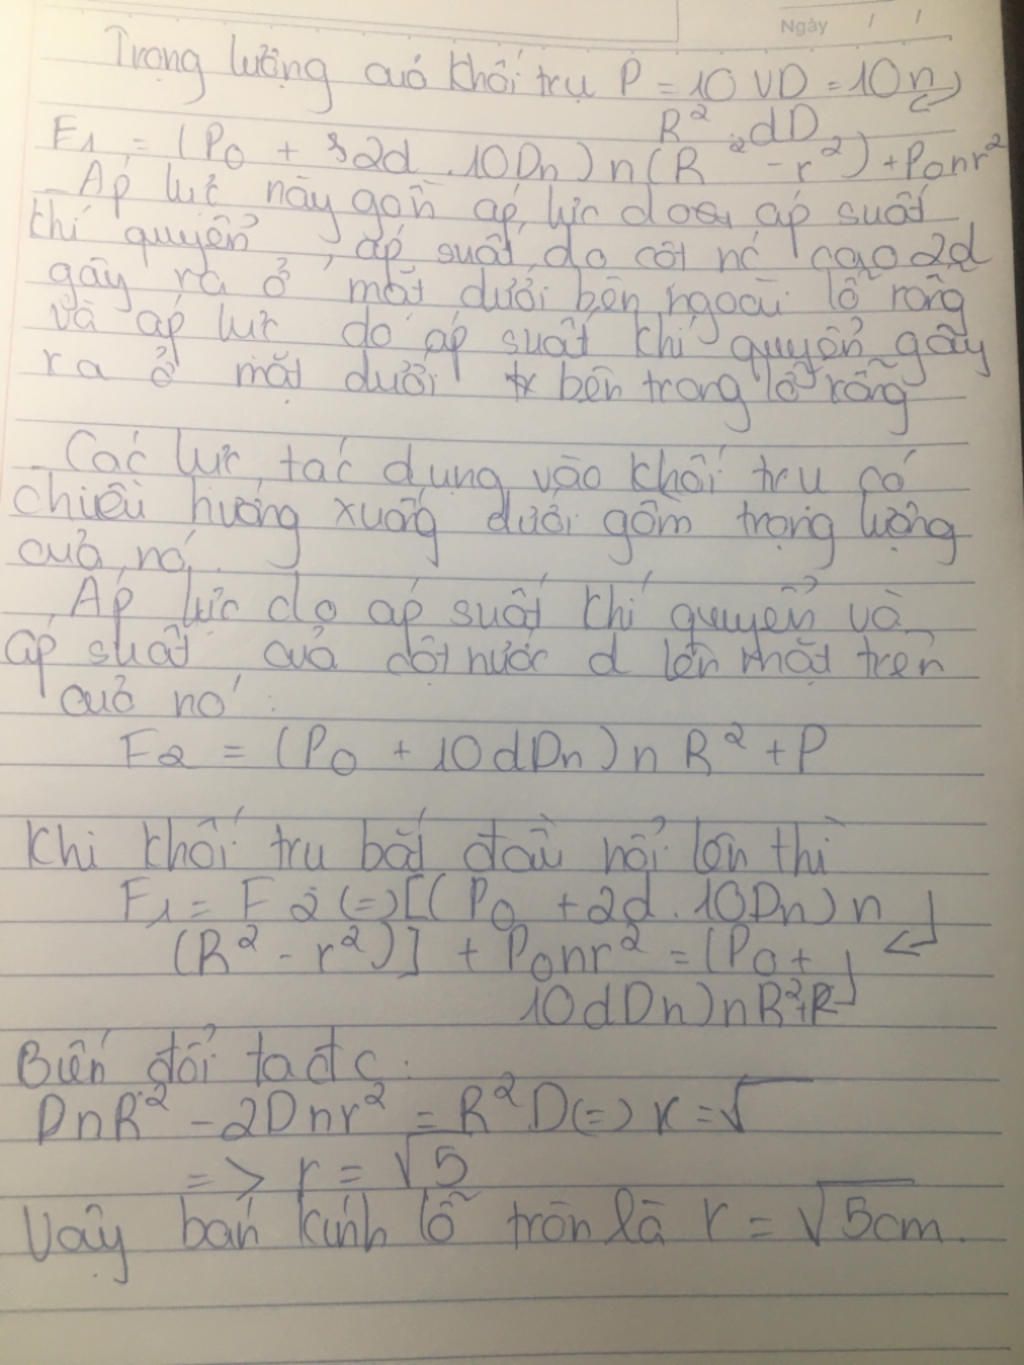 Ngày / /
Trọng lượng cuả khối trụ P = 10 VD = 10n
R² dD
F1 = (P0 + 2d . 10Dn) n (R² - r²) + P0nr²
- Áp lực này gồm áp lực do áp suất
khí quyển, áp suất do cột nc cao 2d
gây ra ở mặt dưới bên ngoài lỗ rỗng
và áp lực do áp suất khí quyển gây
ra ở mặt dưới bên trong lỗ rỗng
- Các lực tác dụng vào khối trụ có
chiều hướng xuống dưới gồm trọng lượng
cuả nó.
Áp lực do áp suất khí quyển và
áp suất cuả cột nước d lên mặt trên
cuả nó :
F2 = (P0 + 10dDn) n R² + P
Khi khối trụ bắt đầu nổi lên thì
F1 = F2 (=) [(P0 + 2d . 10Dn) n
(R² - r²)] + P0nr² = (P0 +
10dDn) nR² +
Biến đổi ta đc :
DnR² - 2Dnr² = R²D (=) r = √
=> r = √5
Vậy bán kính lỗ tròn là r = √5cm.